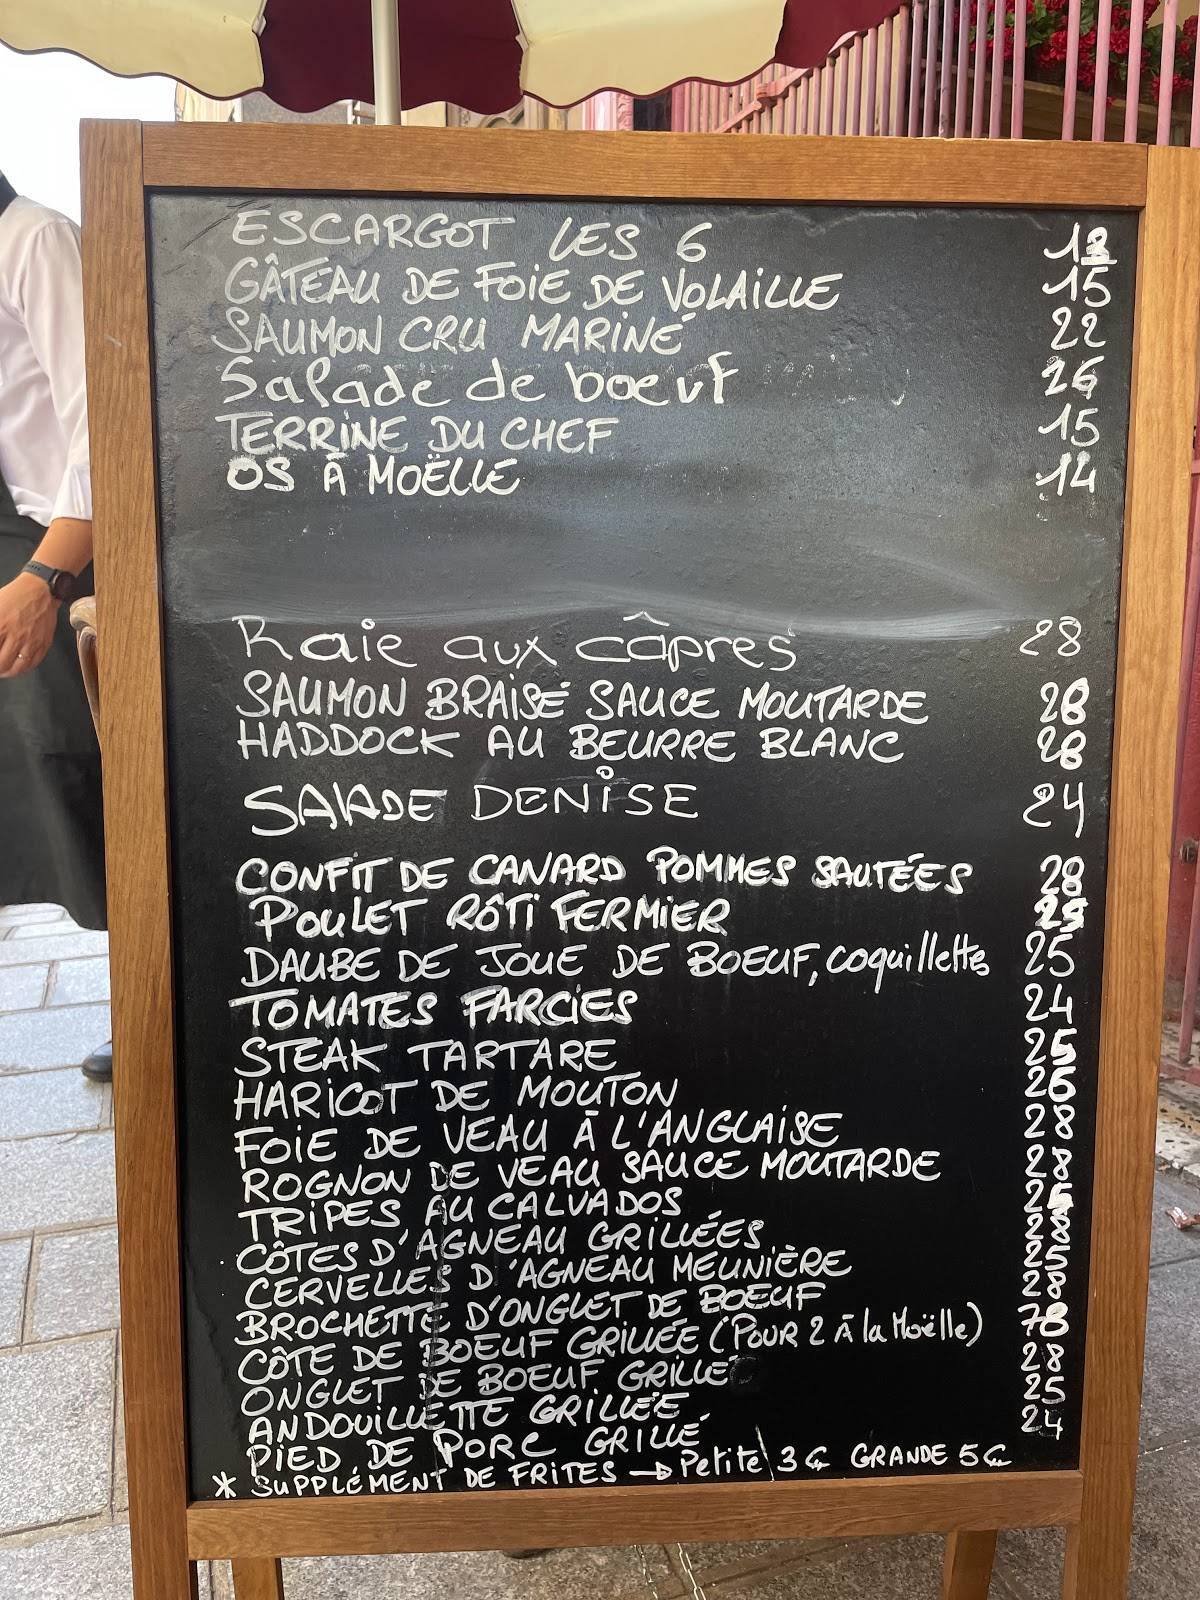 ESCARGOT LES 6
GÂTEAU DE FOiE DE VOLAILLE 15
SAUMON CRU MARINÉ 22
Salade de boeuf 26
TERRINE DU CHEF 15
OS À MOËLLE 14
Raie aux câpres 28
SAUMON BRAISÉ SAUCE MOUTARDE 28
HADDOCK AU BEURRE BLANC 28
SALADE DENiSE 24
CONFIT DE CANARD POMMES SAUTÉES 28
POULET RÔTi FERMiER 25
DAUBE DE JOUE DE BOEUF, coquillettes 25
TOMATES FARCiES 24
STEAK TARTARE 25
HARiCOT DE MOUTON 26
FOiE DE VEAU À L'ANGLAiSE 28
ROGNON DE VEAU SAUCE MOUTARDE 28
TRiPES AU CALVADOS 25
CÔTES D'AGNEAU GRiLLÉES 28
CERVELLES D'AGNEAU MEUNiÈRE 25
BROCHETTE D'ONGLET DE BOEUF 28
CÔTE DE BOEUF GRiLLÉE (POUR 2 À la Moëlle) 78
ONGLET DE BOEUF GRiLLÉ 28
ANDOUiLLETTE GRiLLÉE 25
PiED DE PORC GRiLLÉ 24
* SUPPLÉMENT DE FRiTES → Petite 3€ GRANDE 5€